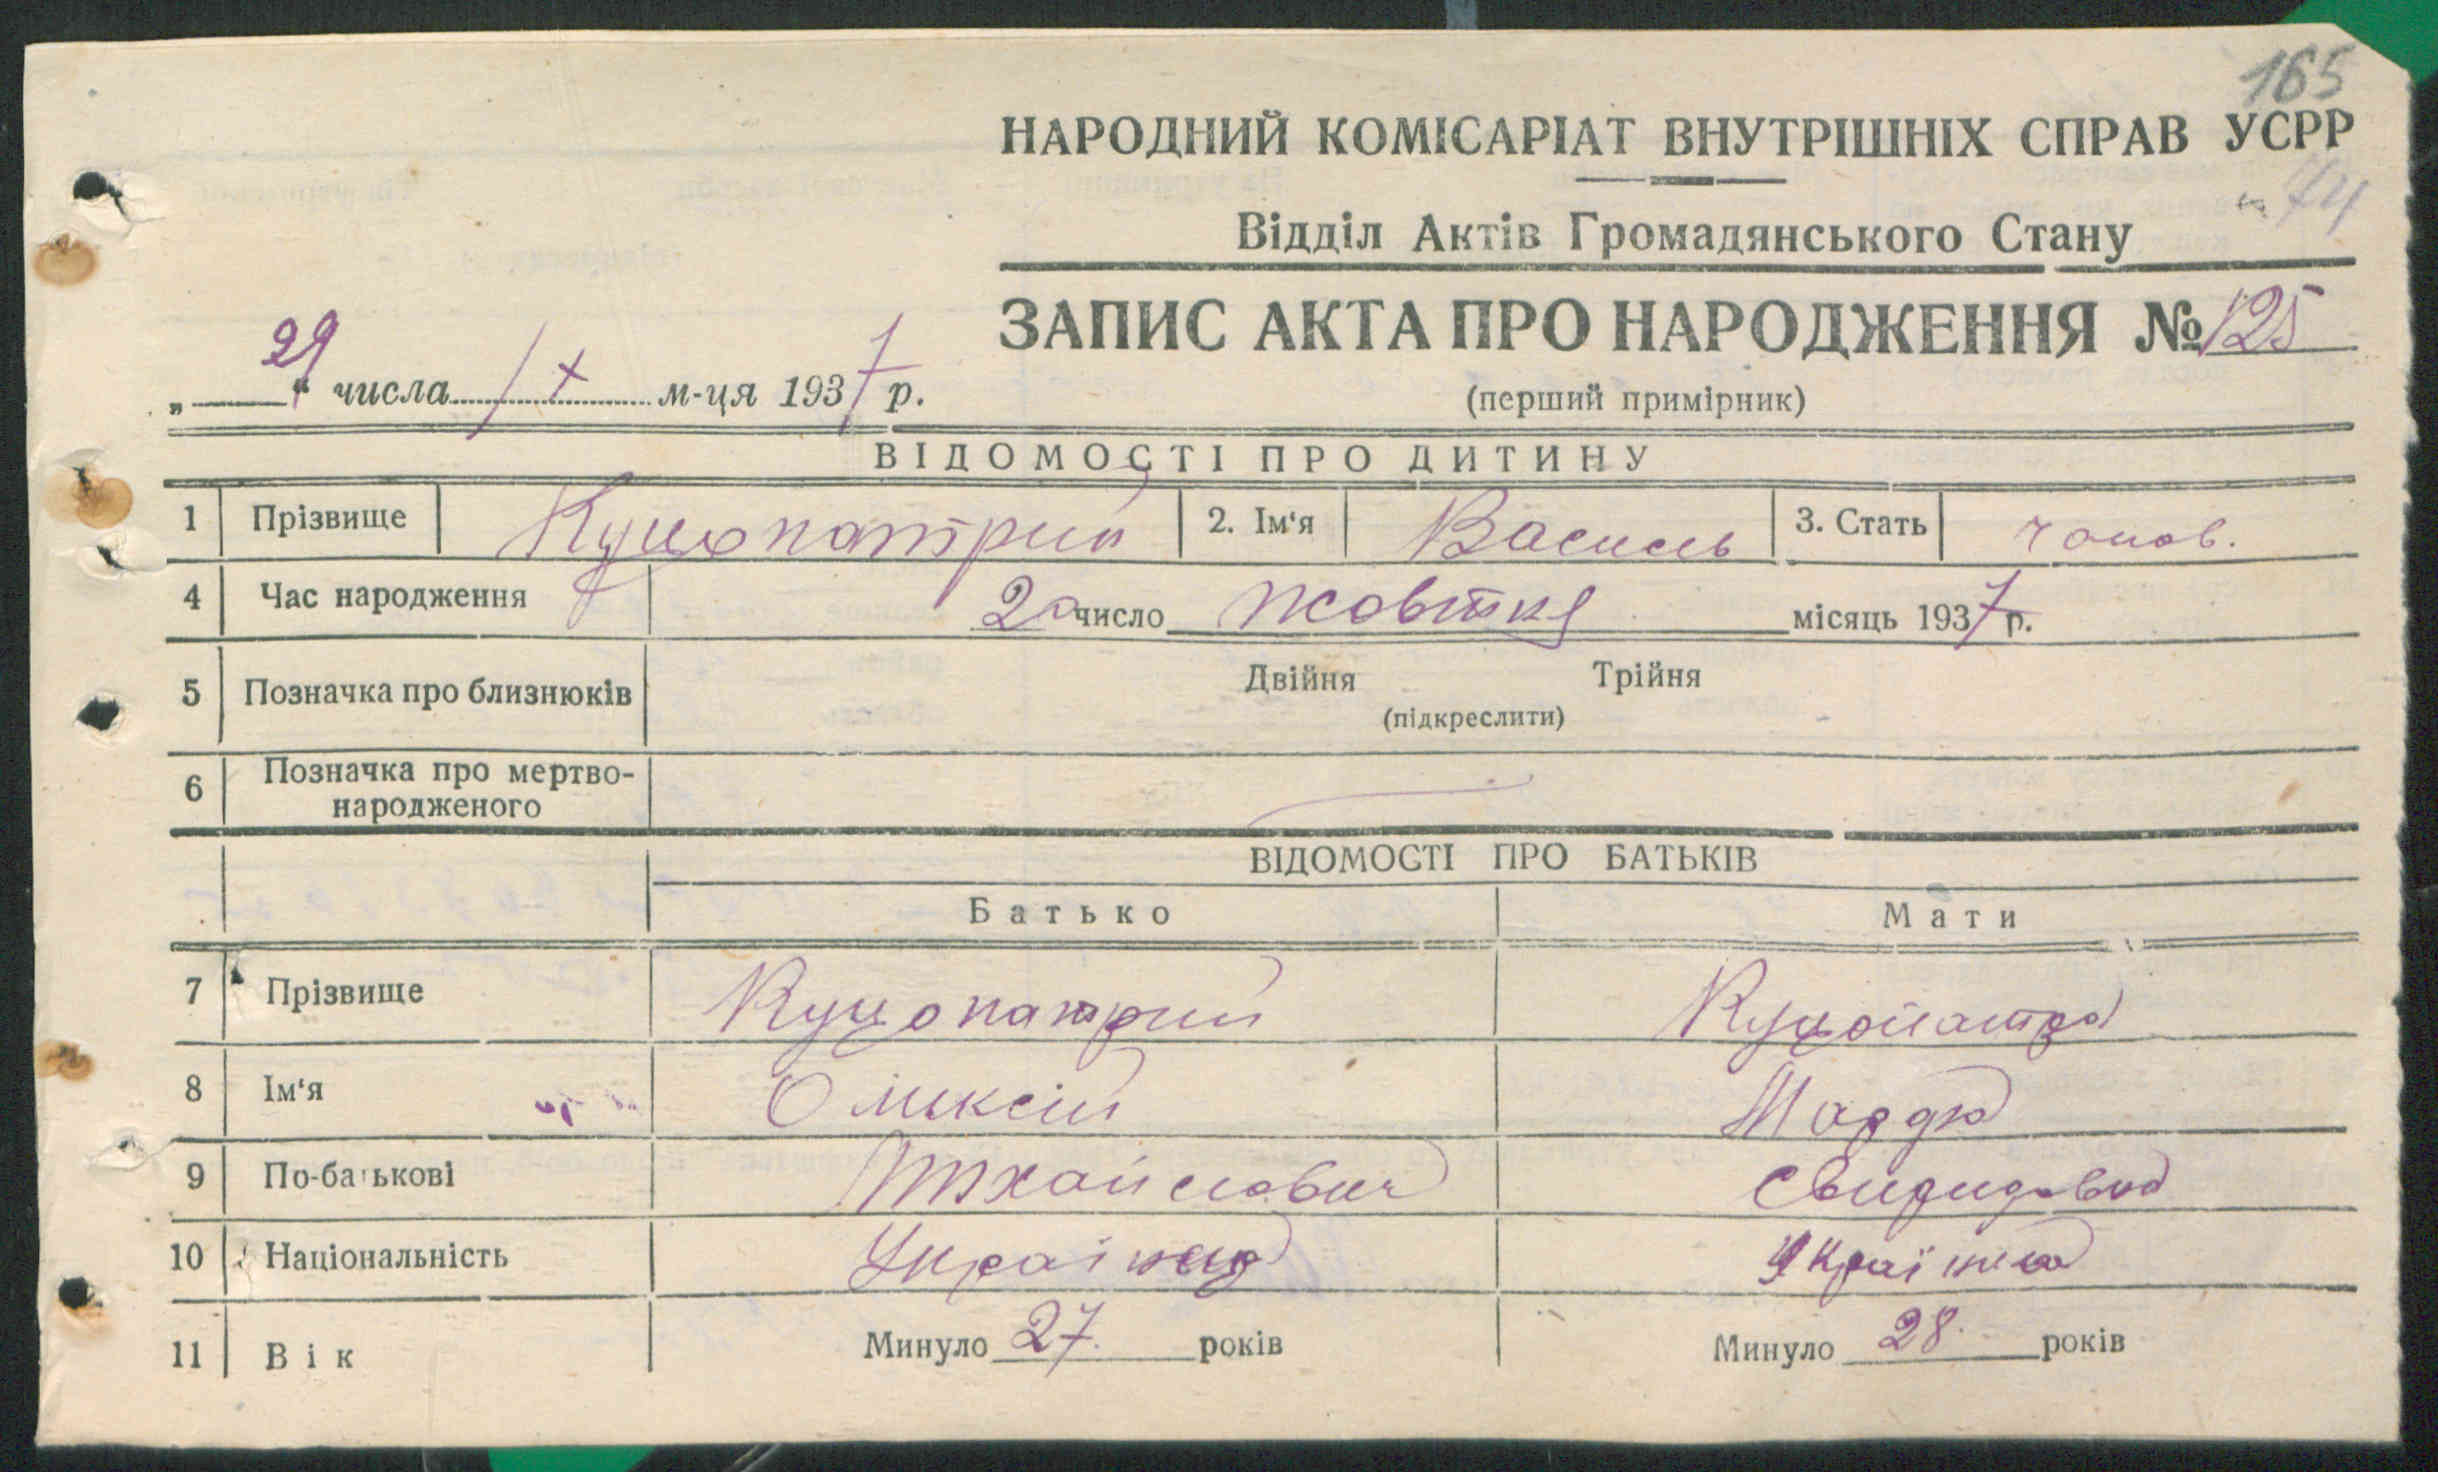 165
НАРОДНИЙ КОМІСАРІАТ ВНУТРІШНІХ СПРАВ УСРР
74
Відділ Актів Громадянського Стану
ЗАПИС АКТА ПРО НАРОДЖЕННЯ № 125
„29“ числа IX м-ця 1937 р.
(перший примірник)
ВІДОМОСТІ ПРО ДИТИНУ
1 Прізвище Куцопатрий 2. Ім‘я Василь 3. Стать чолов.
4 Час народження 20 число жовтня місяць 1937 р.
5 Позначка про близнюків Двійня Трійня
(підкреслити)
6 Позначка про мертво-
народженого
ВІДОМОСТІ ПРО БАТЬКІВ
Батько Мати
7 Прізвище Куцопатрий Куцопатра
8 Ім‘я Олексій
9 По-батькові Михайлович
10 Національність Українец Українка
11 Вік Минуло 27 років Минуло 28 років